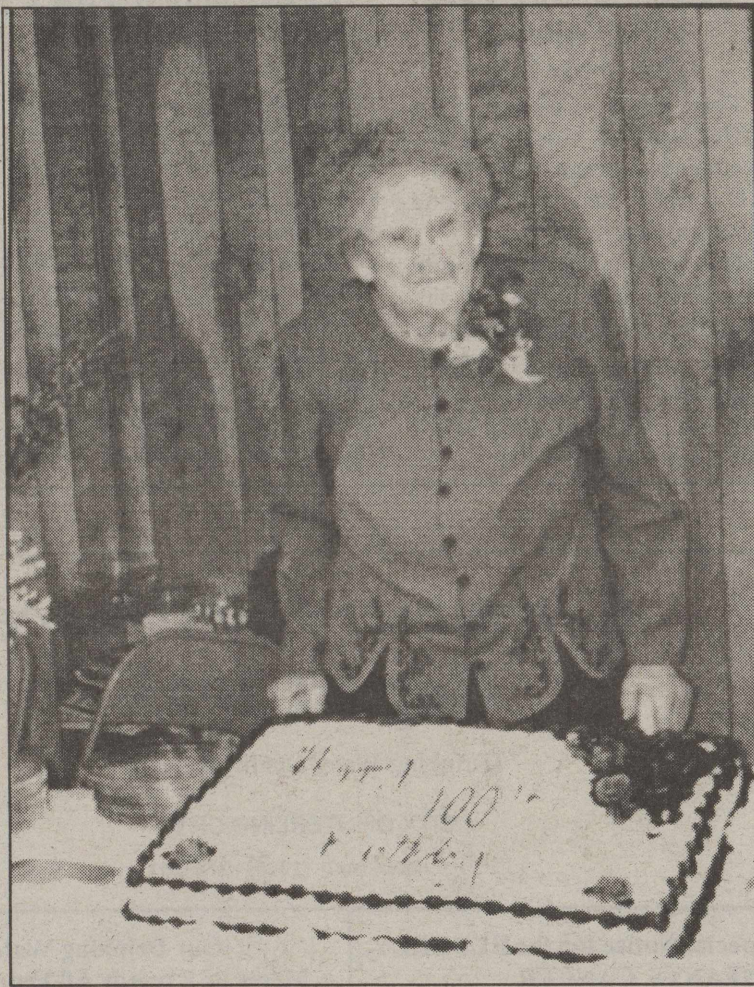 Happy
100th
Birthday